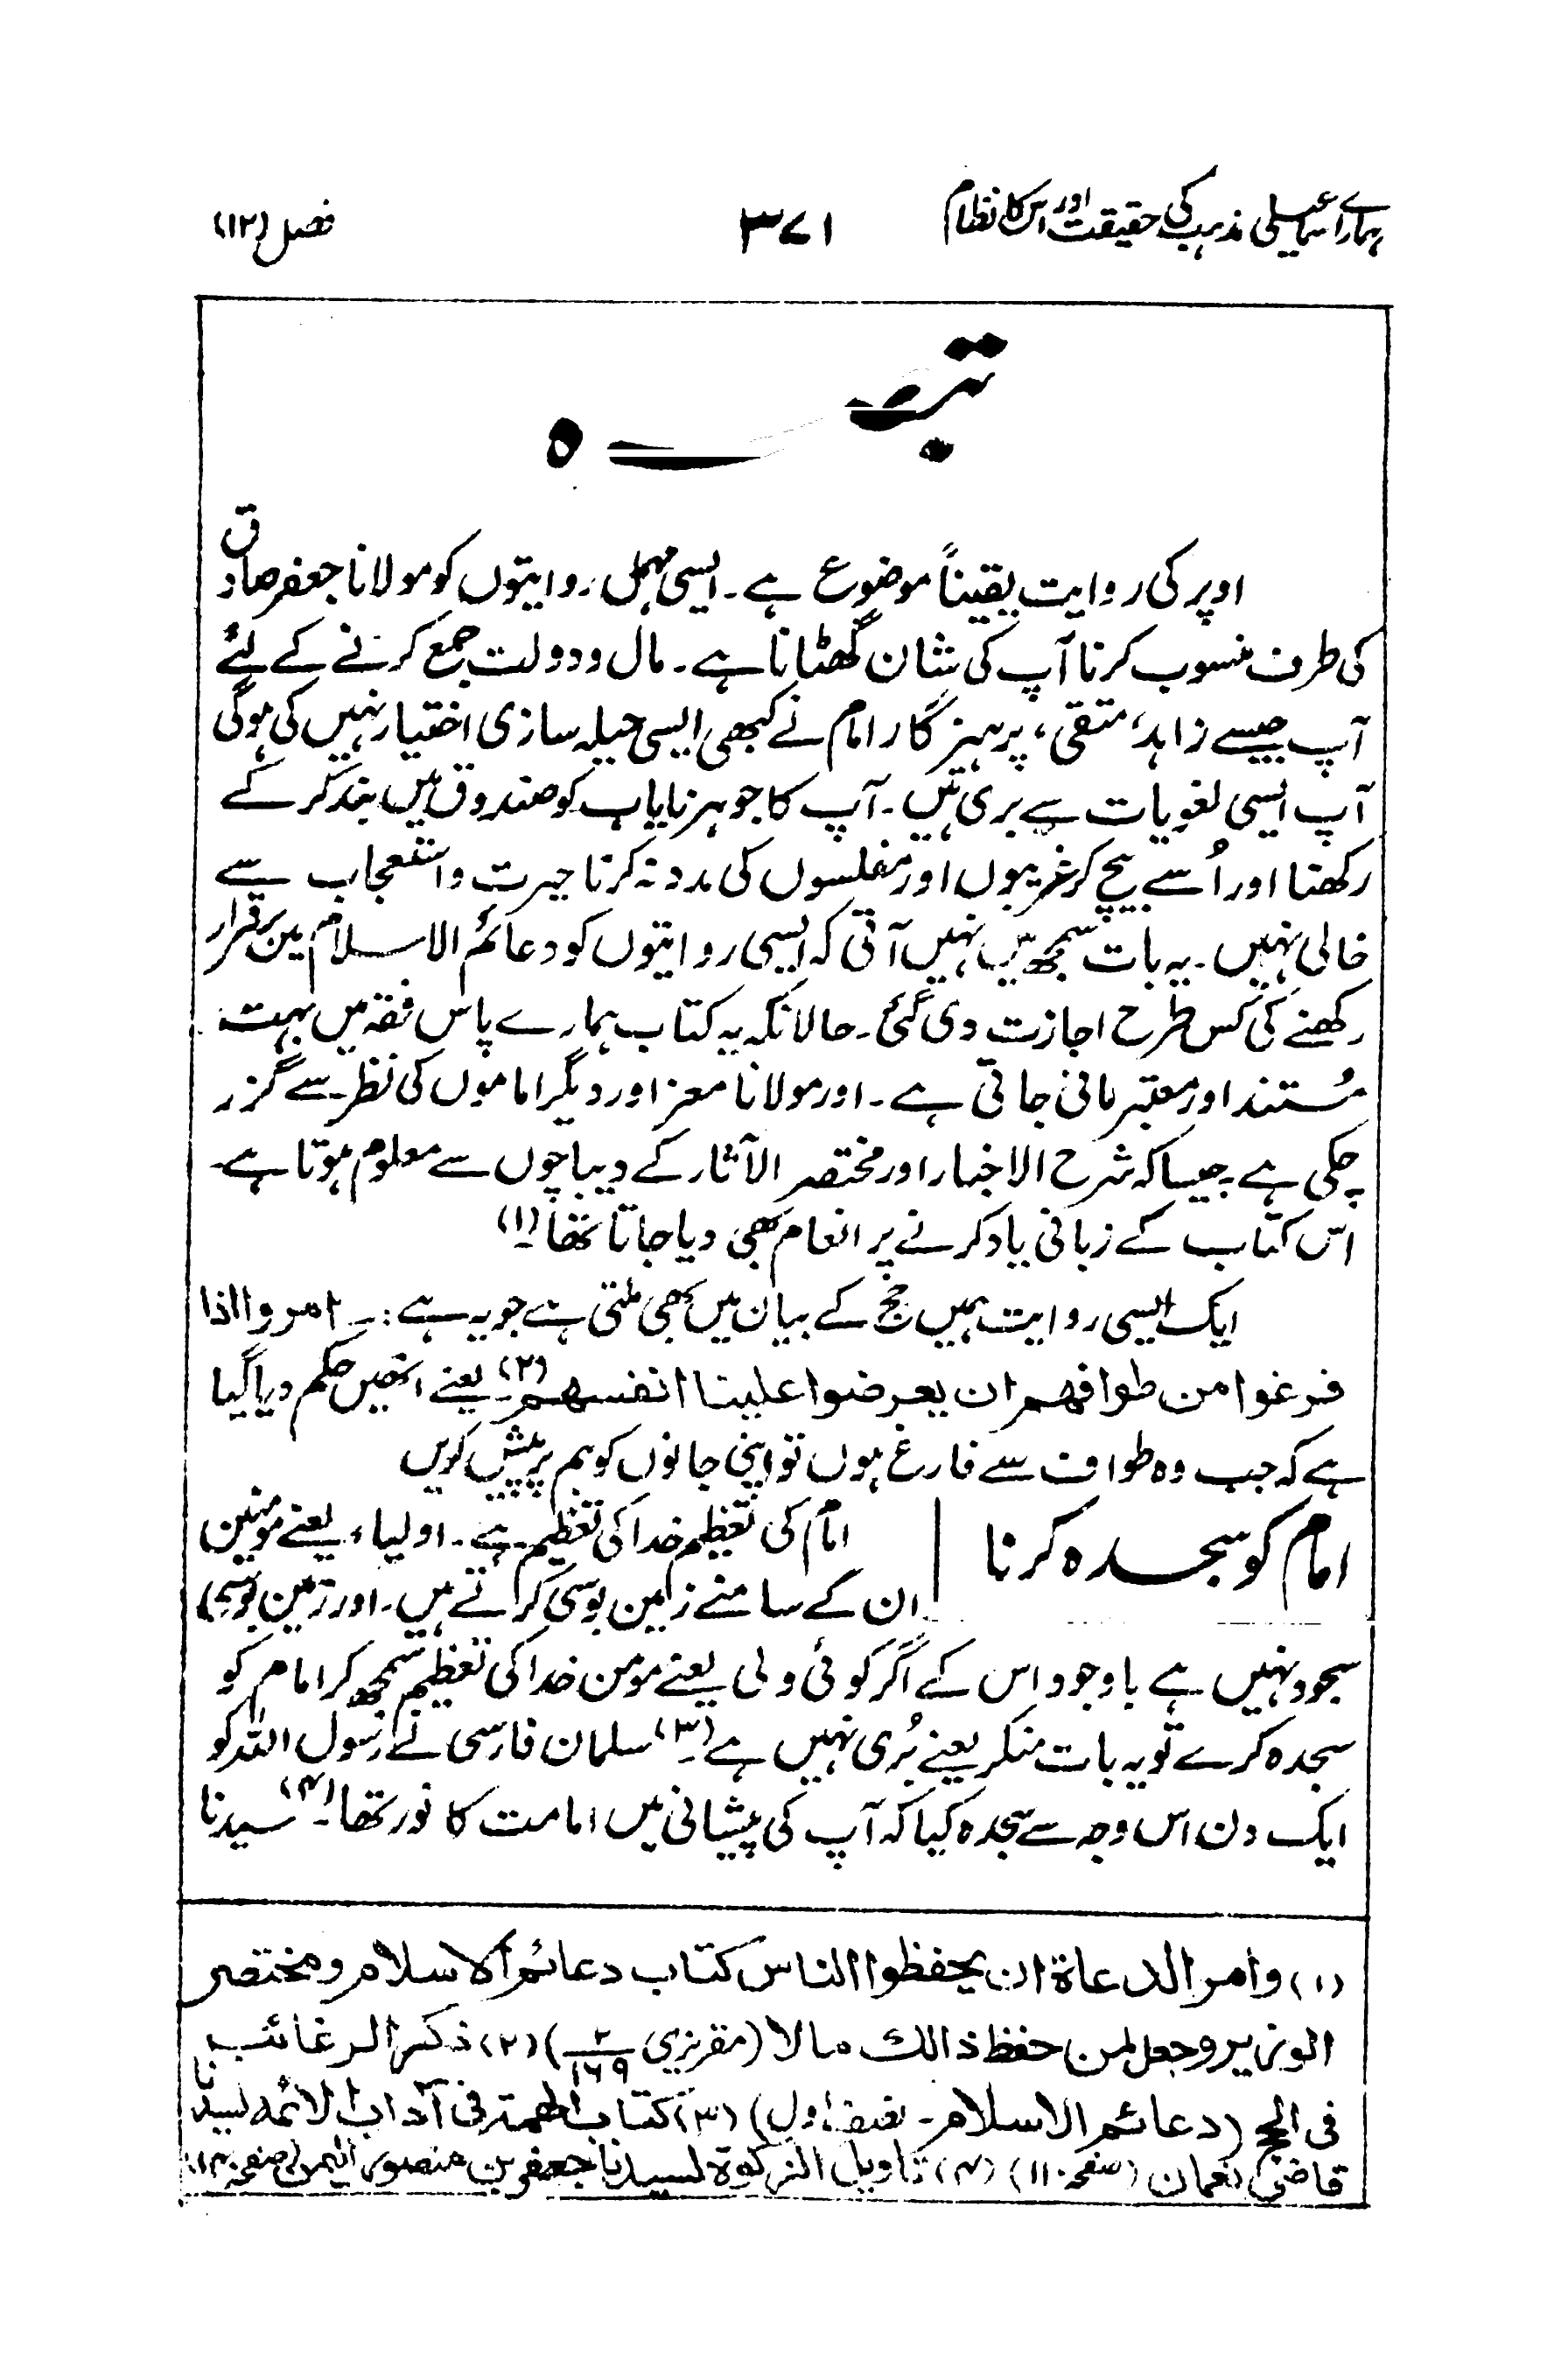 ہمارے اسماعیلی مذہب کی حقیقت اور اس کا نظام
۳۷۱
فصل (۱۲)
تبصرہ
اوپر کی روایت یقیناً موضوع ہے۔ ایسی مہمل روایتوں کو مولانا جعفر صادق
کی طرف منسوب کرنا آپ کی شان گھٹانا ہے۔ مال و دولت جمع کرنے کے لئے
آپ جیسے زاہد، متقی، پرہیزگار امام نے کبھی ایسی حیلہ سازی اختیار نہیں کی ہوگی
آپ ایسی لغویات سے بری ہیں۔ آپ کا جوہر نایاب کو صندوق میں بند کر کے
رکھنا اور اُسے بیچ کر غریبوں اور مفلسوں کی مدد نہ کرنا حیرت و استعجاب سے
خالی نہیں۔ یہ بات سمجھ میں نہیں آتی کہ ایسی روایتوں کو دعائم الاسلام میں برقرار
رکھنے کی کس طرح اجازت دی گئی۔ حالانکہ یہ کتاب ہمارے پاس فقہ میں بہت
مُستند اور معتبر مانی جاتی ہے۔ اور مولانا معز اور دیگر اماموں کی نظر سے گزر
چکی ہے۔ جیسا کہ شرح الاخبار اور مختصر الآثار کے دیباچوں سے معلوم ہوتا ہے۔
اس کتاب کے زبانی یاد کرنے پر انعام بھی دیا جاتا تھا۔(۱)
ایک ایسی روایت ہمیں حج کے بیان میں بھی ملتی ہے جو یہ ہے:۔ امروا اذا
فرغوا من طوافهم ان یعرضوا علینا انفسهم۔(۲) یعنے انھیں حکم دیا گیا
ہے کہ جب وہ طواف سے فارغ ہوں تو اپنی جانوں کو ہم پر پیش کریں
امام کو سجدہ کرنا
امام کی تعظیم خدا کی تعظیم ہے۔ اولیاء یعنے مومنین
ان کے سامنے زمین بوسی کراتے ہیں۔ اور زمین بوسی
سجود نہیں ہے باوجود اس کے اگر کوئی ولی یعنے مومن خدا کی تعظیم سمجھ کر امام کو
سجدہ کرے تو یہ بات منکر یعنے بُری نہیں ہے۔(۳) سلمان فارسی نے رسول اللہ کو
ایک دن اس وجہ سے سجدہ کیا کہ آپ کی پیشانی میں امامت کا نور تھا۔(۴) سیدنا
(۱) وامر الدعاة ان یحفظوا الناس کتاب دعائم الاسلام ومختصر
الوزیر وجعل لمن حفظ ذالك مالا (مقریزی ۲/۱۶۹) (۲) ذکر الرغائب
فی الحج (دعائم الاسلام۔ نصف اول) (۳) کتاب الهمة فی آداب الائمه لسیدنا
قاضی نعمان (صفحہ ۱۱۰) (۴) تاویل الزکوة لسیدنا جعفر بن منصور الیمن